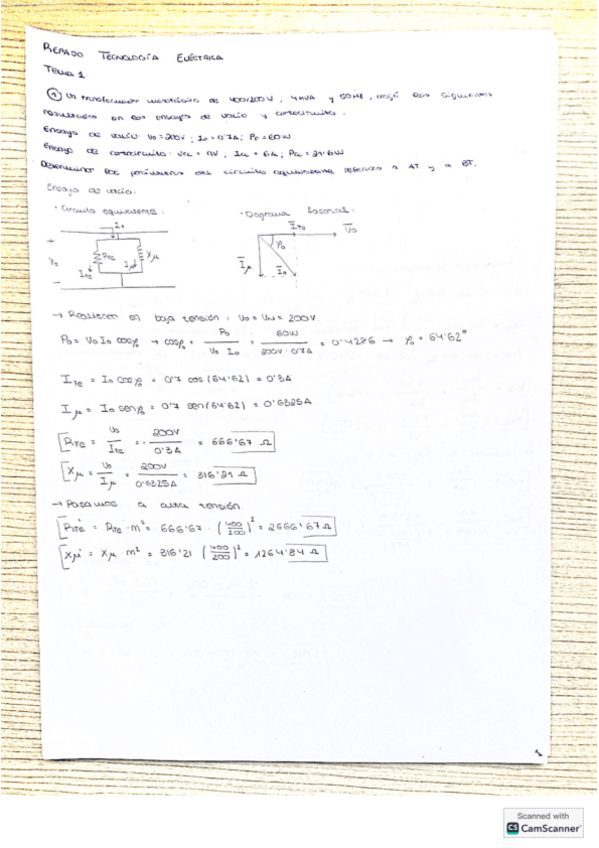 REPASO TECNOLOGÍA ELÉCTRICA
Tema 1.
① Un transformador monofásico de 400/200V, 4KVA y 50Hz, arrojó los siguientes
resultados en los ensayos de vacío y cortocircuito.
Ensayo de vacío: V0=200V; I0=0'7A; P0=60W
Ensayo de cortocircuito: Vcc= V; Icc=6A; Pcc=21'6W
Determinar los parámetros del circuito equivalente referido a AT y a BT.
Ensayo de vacío:
· Circuito equivalente:
· Diagrama fasorial:
I0
V0
RFe
IFe
Iμ
Xμ
IFe
V0
φ0
Iμ
I0
→ Realizamos en baja tensión: V0 = VN = 200V.
P0 = V0 I0 cosφ0 → cosφ0 = P0 / V0 I0 = 60W / 200V · 0'7A = 0'4286 → φ0 = 64'62°
IFe = I0 cosφ0 = 0'7 cos(64'62) = 0'3A
Iμ = I0 senφ0 = 0'7 sen(64'62) = 0'6325A
RFe = V0 / IFe = 200V / 0'3A = 666'67 Ω
Xμ = V0 / Iμ = 200V / 0'6325A = 316'21 Ω
→ Pasamos a alta tensión
RFe' = RFe · m² = 666'67 · (400/200)² = 2666'67 Ω
Xμ' = Xμ m² = 316'21 (400/200)² = 1264'84 Ω
Scanned with
CS CamScanner